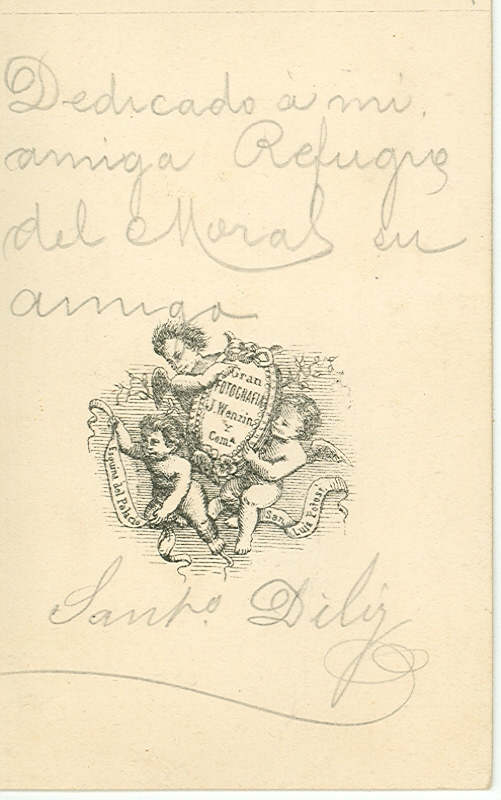 Dedicado à mi
amiga Refugio
del Moral su
amigo
Gran
FOTOGRAFIA
J. Wenzin
Y
Comª
Esquina del Palacio
San Luis Potosí
Santº. Diliz